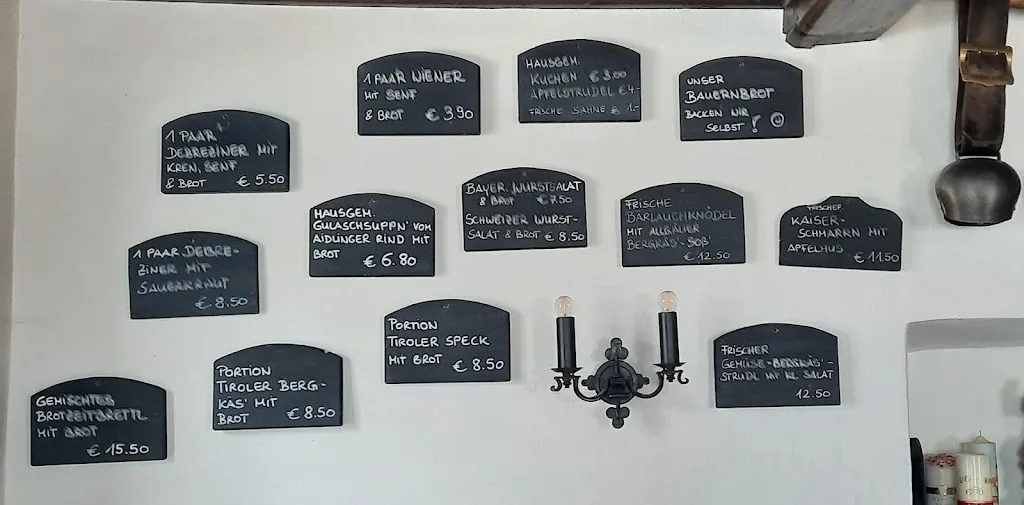 1 PAAR WIENER
MIT SENF
& BROT € 3.90
HAUSGEM.
KUCHEN € 3.00
APFELSTRUDEL € 4.-
FRISCHE SAHNE € 1.-
UNSER
BAUERNBROT
BACKEN WIR
SELBST!
1 PAAR
DEBREZINER MIT
KREN, SENF
& BROT € 5.50
HAUSGEM.
GULASCHSUPPN' VOM
AIDLINGER RIND MIT
BROT € 6.80
BAYER. WURSTSALAT
& BROT € 7.50
SCHWEIZER WURST-
SALAT & BROT € 8.50
FRISCHE
BÄRLAUCHKNÖDEL
MIT ALLGÄUER
BERGKÄS'-SOß'
€ 12.50
FRISCHER
KAISER-
SCHMARRN MIT
APFELMUS € 11.50
1 PAAR DEBRE-
ZINER MIT
SAUERKRAUT
€ 8.50
PORTION
TIROLER SPECK
MIT BROT € 8.50
FRISCHER
GEMÜSE-BERGKÄS'-
STRUDL MIT KL. SALAT
12.50
PORTION
TIROLER BERG-
KÄS' MIT
BROT € 8.50
GEMISCHTES
BROTZEITBRETTL
MIT BROT
€ 15.50